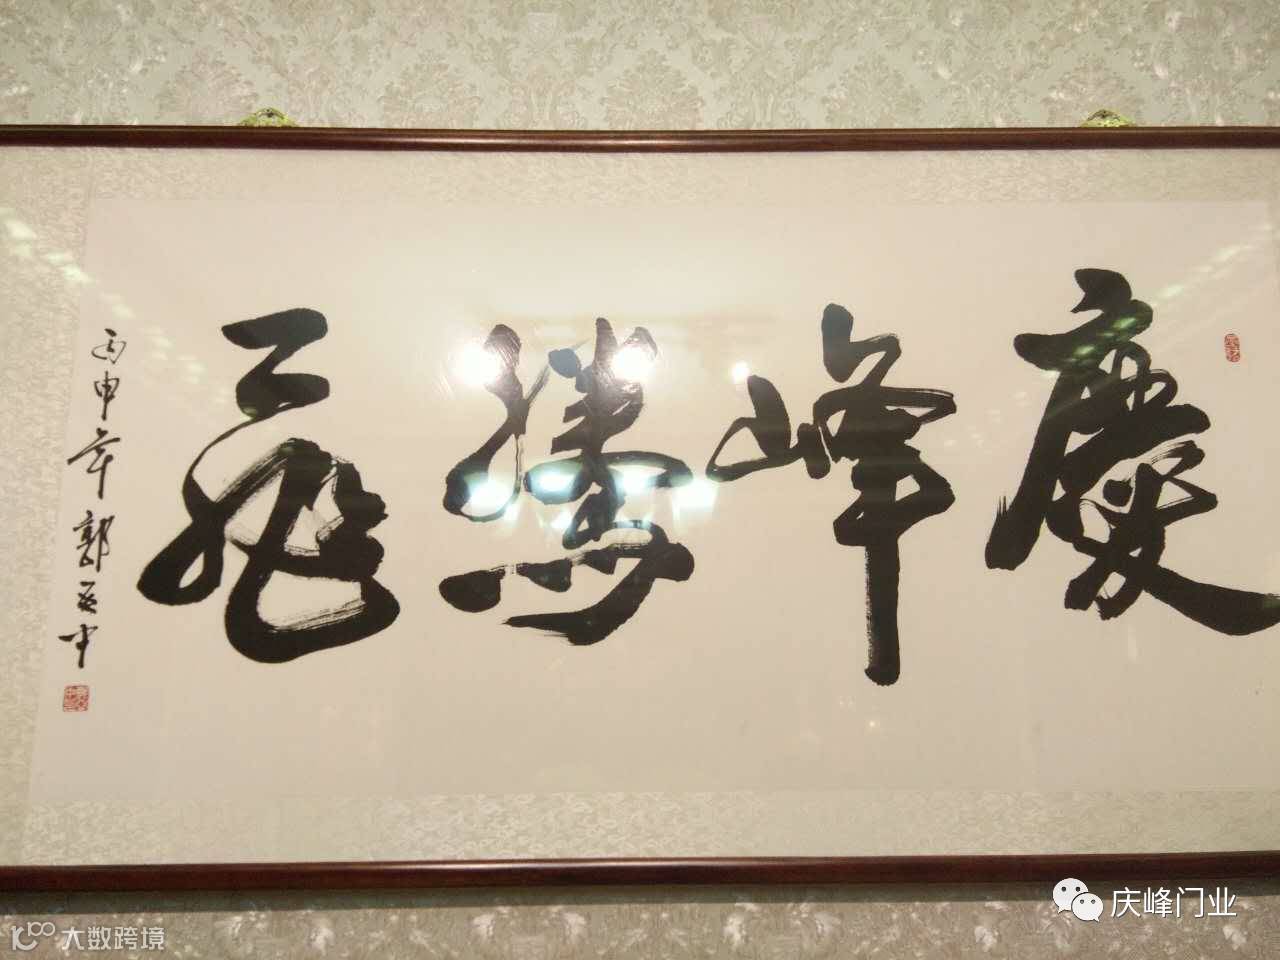 慶峰騰飛
丙申年郭英中
庆峰门业
大数跨境